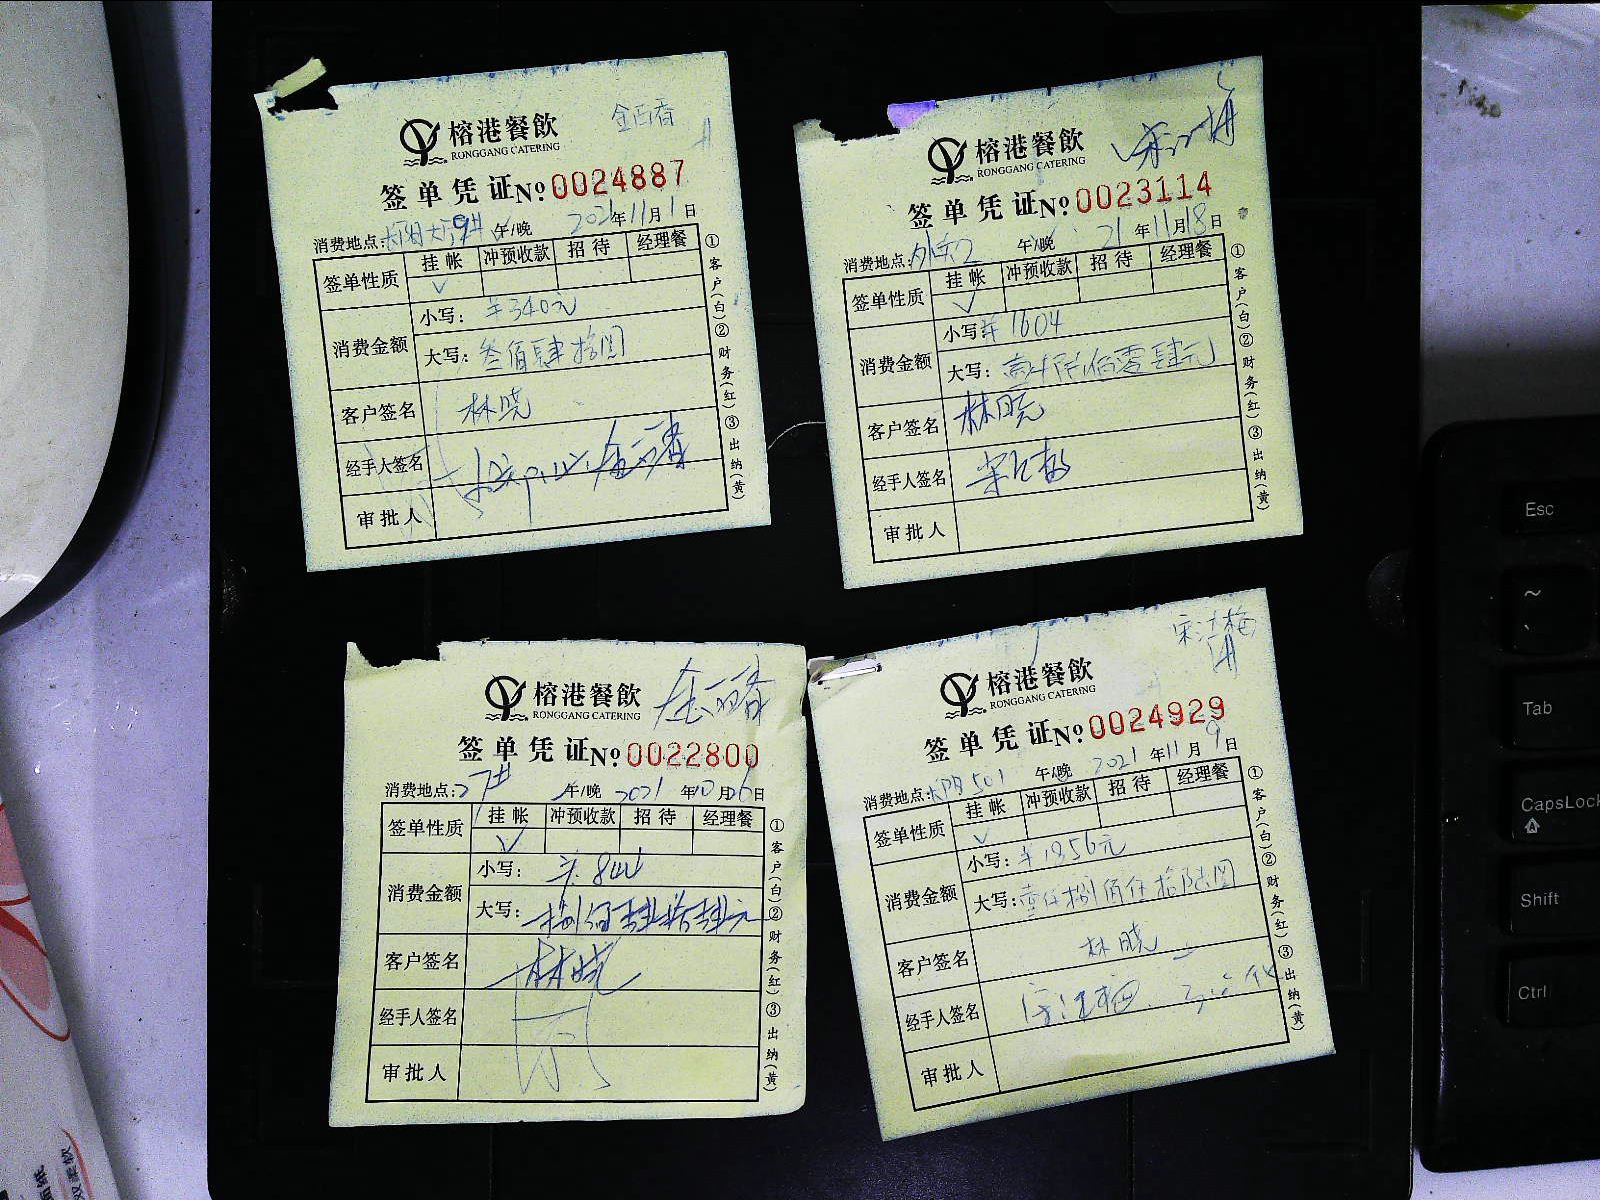 金百香
榕港餐飲
RONGGANG CATERING
签单凭证 No 0024887
消费地点: 午/晚 2021年11月1日
签单性质 挂帐 冲预收款 招待 经理餐
√
消费金额 小写: ¥340元
大写: 叁佰肆拾圆
客户签名 林晓
经手人签名 金百香
审批人
①客户(白)②财务(红)③出纳(黄)
榕港餐飲
RONGGANG CATERING
签单凭证 No 0023114
消费地点: 午/晚 21年11月18日
签单性质 挂帐 冲预收款 招待 经理餐
√
消费金额 小写: ¥1604
大写: 壹仟陆佰零肆元
客户签名 林晓
经手人签名
审批人
①客户(白)②财务(红)③出纳(黄)
金百香
榕港餐飲
RONGGANG CATERING
签单凭证 No 0022800
消费地点: 午/晚 2021年10月26日
签单性质 挂帐 冲预收款 招待 经理餐
√
消费金额 小写: ¥844
大写: 捌佰肆拾肆元
客户签名 林晓
经手人签名
审批人
①客户(白)②财务(红)③出纳(黄)
宋江梅
榕港餐飲
RONGGANG CATERING
签单凭证 No 0024929
消费地点: 501 午/晚 2021年11月9日
签单性质 挂帐 冲预收款 招待 经理餐
√
消费金额 小写: ¥1856元
大写: 壹仟捌佰伍拾陆圆
客户签名 林晓
经手人签名 宋江梅
审批人
①客户(白)②财务(红)③出纳(黄)
Esc
~
`
Tab
CapsLock
Shift
Ctrl